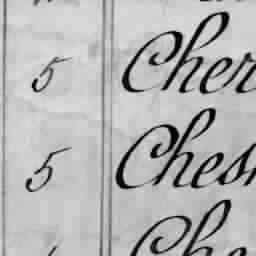 5 Cher
5 Ches
Che